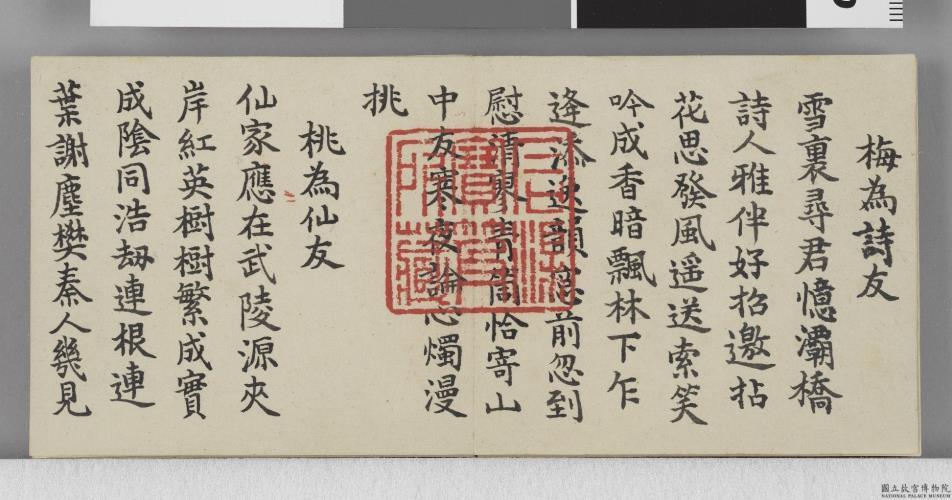 梅為詩友
雪裏尋君憶灞橋
詩人雅伴好招邀拈
花思發風遥送索笑
吟成香暗飄林下乍
逢添逸韻窓前忽到
慰清寥恰寄山
中友寒夜論心燭漫
挑
桃為仙友
仙家應在武陵源夾
岸紅英樹樹繁成實
成陰同浩劫連根連
葉謝塵樊秦人幾見
石渠寶笈所藏
國立故宮博物院
NATIONAL PALACE MUSEUM